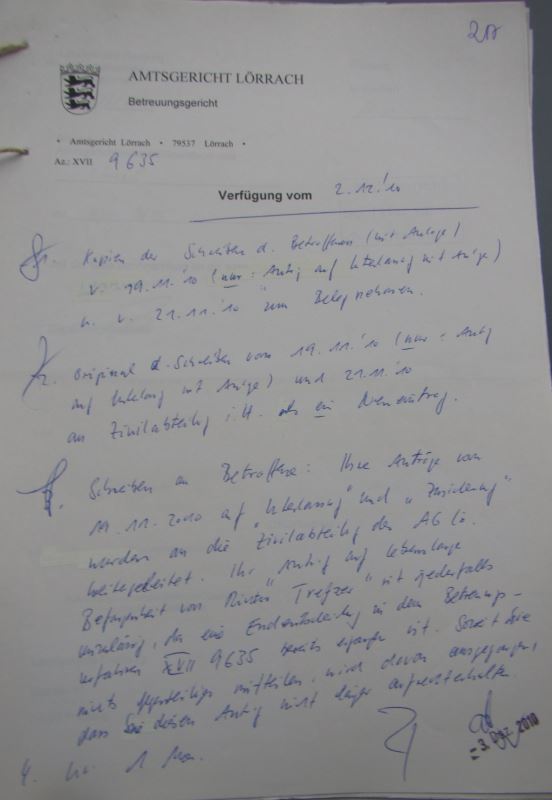 217
AMTSGERICHT LÖRRACH
Betreuungsgericht
• Amtsgericht Lörrach • 79537 Lörrach •
Az.: XVII 9635
Verfügung vom 2.12.'10
1. Kopien der Schreiben d. Betroffenen (mit Anlage)
v. 19.11.'10 (nur: Antrag auf Unterlassung mit Anlage)
u. v. 21.11.'10 zum
2. Original d. Schreiben vom 19.11.'10 (nur: Antrag
auf Unterlassung mit Anlage) und 21.11.'10
an Zivilabteilung i.H. als ein Neueintrag.
3. Schreiben an Betroffene: Ihre Anträge vom
19.11.2010 auf "Unterlassung" und
wurden an die Zivilabteilung des AG Lö.
weitergeleitet. Ihr Antrag auf lebenslange
Befangenheit von Trefzer" ist jedenfalls
unzulässig, da eine Endentscheidung in dem Betreuungs-
verfahren XVII 9635 bereits ergangen ist. Soweit Sie
nichts gegenteiliges mitteilen, wird davon ausgegangen,
dass Sie diesen Antrag nicht länger aufrechterhalten.
4. 1 Mon.
ab
- 3. Dez. 2010